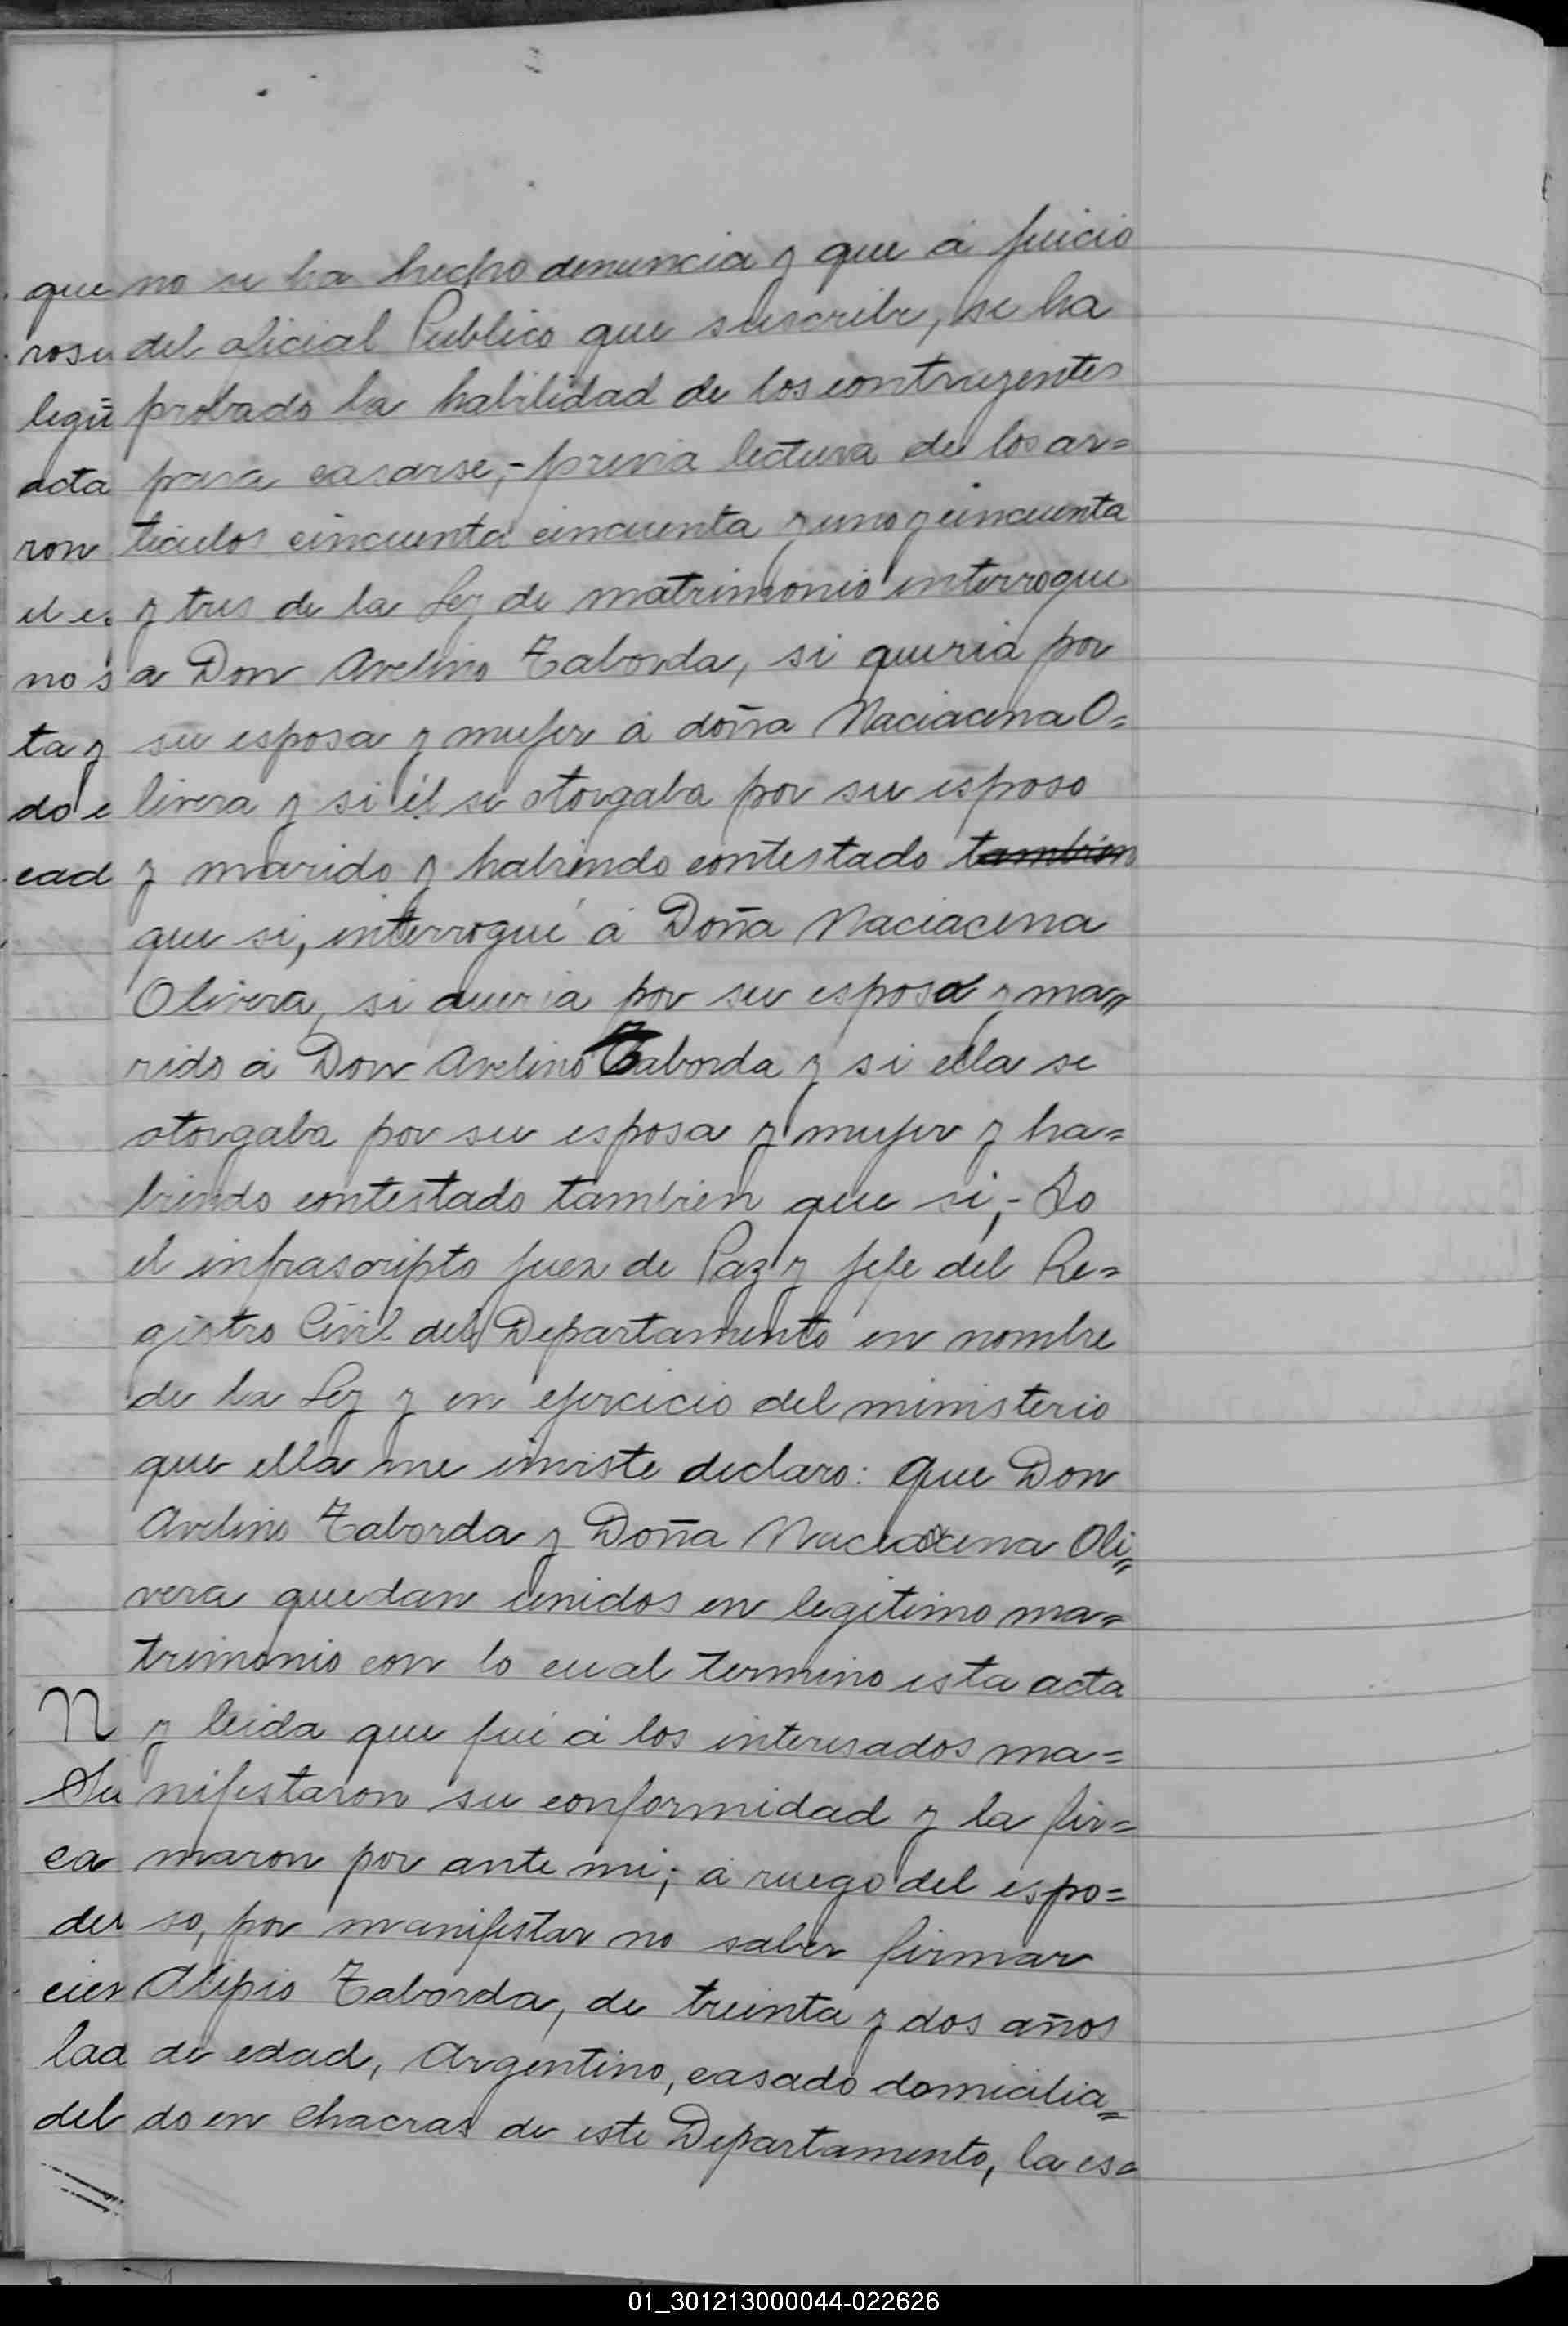 que no se ha hecho denuncia y que á juicio
rosu del oficial Publico que suscribe, se ha
legií probado la habilidad de los contrayentes
acta para casarse,- previa lectura de los ar=
ron ticulos cincuenta cincuenta y uno y cincuenta
el e. y tres de la Ley de matrimonio interroque
no s a Don Avelino Taborda, si queria por
ta y su esposa y mujer á doña Naciacena O=
do e livera y si él se otorgaba por su esposo
cad y marido y habiendo contestado tambien
que si, interroqué á Doña Naciacena
Olivera, si queria por su esposo y ma=
rido á Don Avelino Taborda y si ella se
otorgaba por su esposa y mujer y ha=
biendo contestado tambien que si,- Yo
el infrascripto Juez de Paz y Jefe del Re=
gistro Civil del Departamento en nombre
de la Ley y en ejercicio del ministerio
que ella me inviste declaro: Que Don
Avelino Taborda y Doña Naciacena Oli=
vera quedan unidos en legitimo ma=
trimonio con lo cual termino esta acta
N y leida que fué á los interesados ma=
Su nifestaron su conformidad y la fir=
ca maron por ante mi; á ruego del espo=
der so, por manifestar no saber firmar
cien Alipio Taborda, de treinta y dos años
lad de edad, Argentino, casado domicilia=
del do en Chacras de este Departamento, la es=
01_301213000044-022626